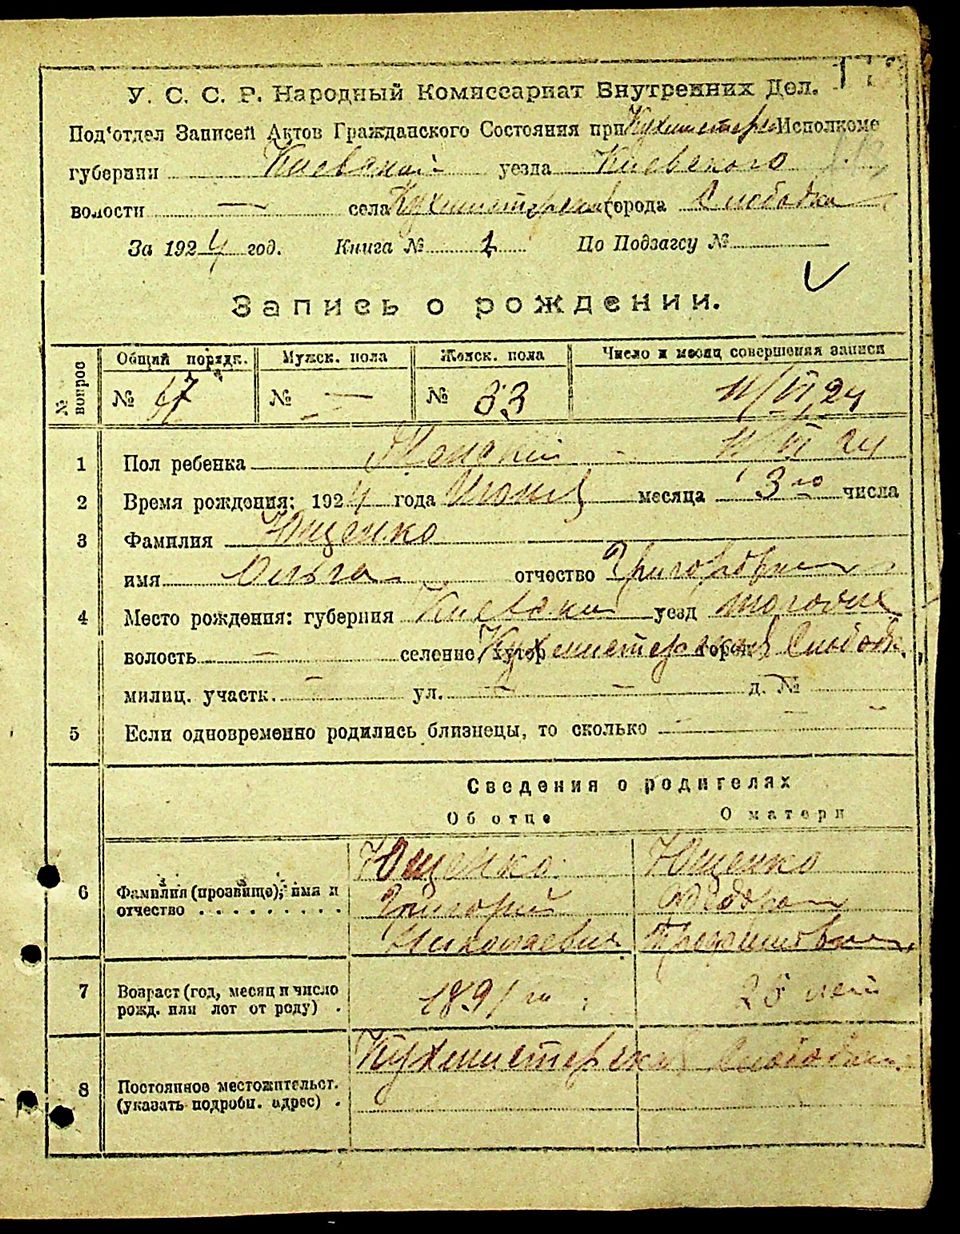 У. С. С. Р. Народный Комиссариат Внутренних Дел.
Под'отдел Записей Актов Гражданского Состояния при Кухмистерск Исполкоме
губернии Киевской уезда Киевского
волости — села Кухмистерская города Слободка
За 1924 год. Книга № 1 По Подзагсу №
Запись о рождении.
№ вопрос Общий порядк. Мужск. пола Женск. пола Число и месяц совершения записи
№ № — № 33 11/VI 24
1 Пол ребенка Женский — 11/VI 24
2 Время рождения: 1924 года Июня месяца 3го числа
3 Фамилия Ющенко
имя Ольга отчество Григоровна
4 Место рождения: губерния Киевская уезд тогоже
волость — селение, хутор город Кухмистерская Слободк.
милиц. участк. — ул. — — д. №
5 Если одновременно родились близнецы, то сколько — — —
Сведения о родителях
Об отце О матери
6 Фамилия (прозвище), имя и отчество
Ющенко Ющенко
Григорий Феодора
Николаевич Трофимовна
7 Возраст (год, месяц и число рожд. или лет от роду) . 1891 го 25 лет
8 Постоянное местожительст. (указать подробн. адрес) . Кухмистерская Слободка